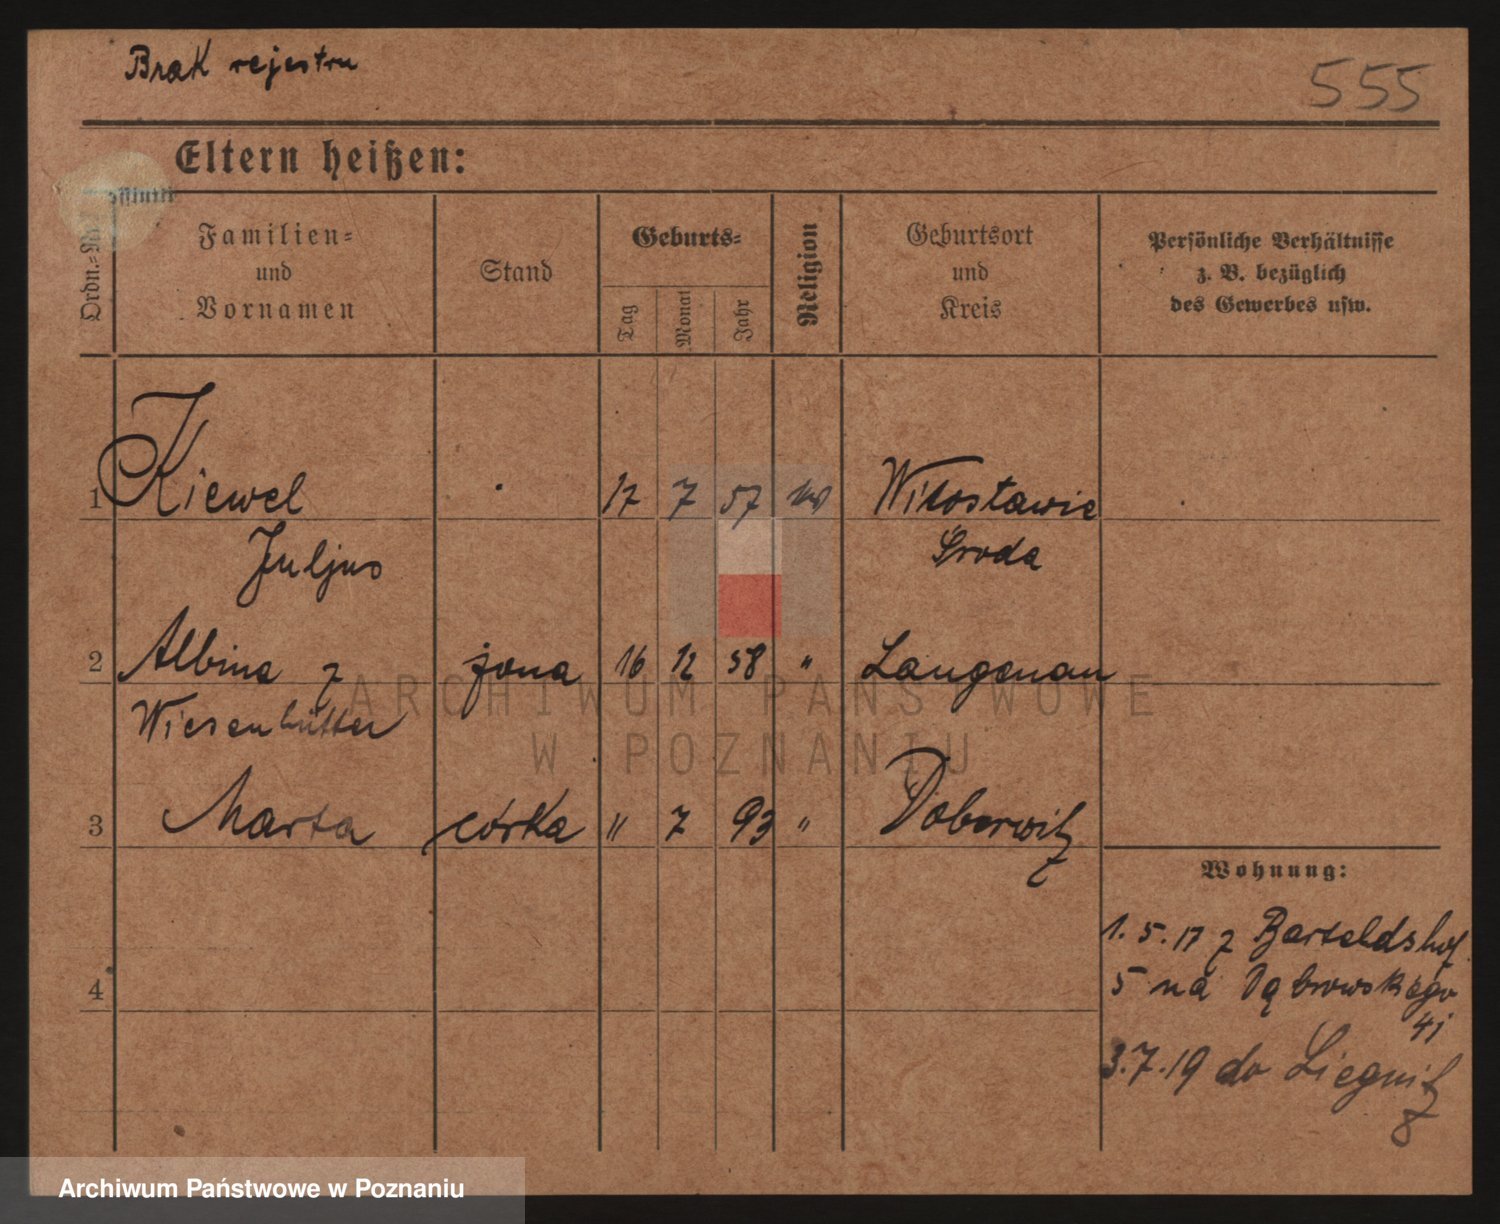 Brak rejestru
555
Eltern heißen:
Ordn.-Nr.
Familien-
und
Vornamen
Stand
Geburts-
Tag
Monat
Jahr
Religion
Geburtsort
und
Kreis
Persönliche Verhältnisse
z. B. bezüglich
des Gewerbes usw.
1 Kiewel 17 7 57 Włostawie
Juljus Środa
2 Albina z żona 16 12 58 " Langenau
Wiesenhütter
3 Marta córka " 7 93 " Doberwitz
Wohnung:
1. 5. 17 z Barteldshof
5 na Dąbrowskiego
41
4
3. 7. 19 do Liegnitz
8
ARCHIWUM PAŃSTWOWE
W POZNANIU
Archiwum Państwowe w Poznaniu